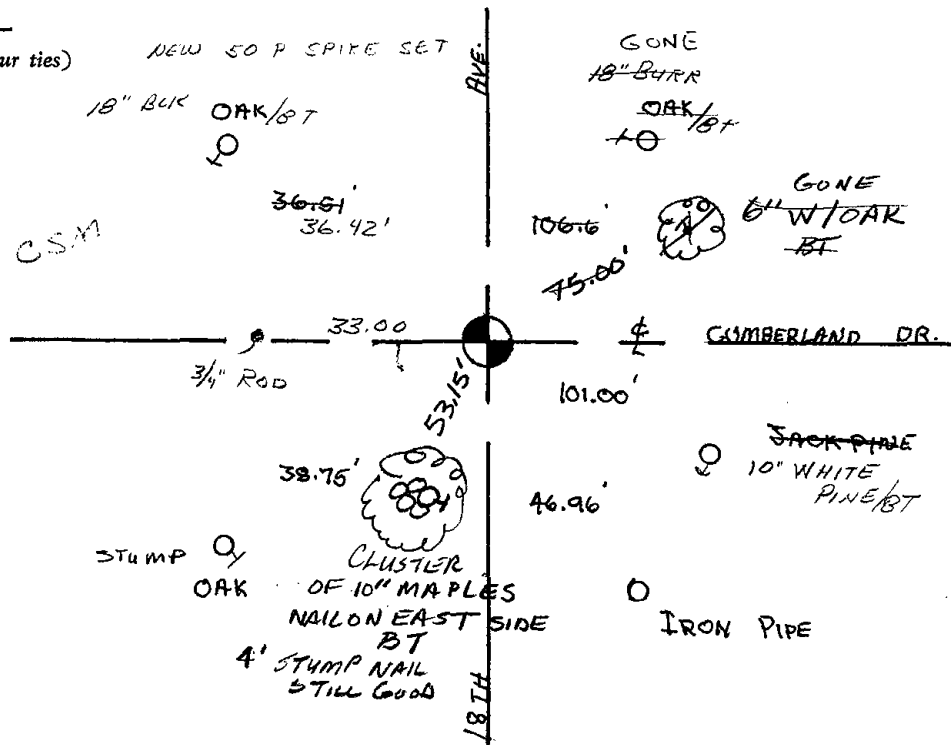 ur ties)
NEW 50 P SPIKE SET
AVE.
GONE
18" BURR
OAK/BT
18" BLK OAK/BT
36.61'
36.42'
CSM
106.6'
GONE
6" W/OAK
BT
75.00'
33.00
℄
CUMBERLAND DR.
3/4" ROD
53.15'
101.00'
38.75'
JACK PINE
10" WHITE
PINE/BT
46.96'
STUMP
OAK
CLUSTER
OF 10" MAPLES
NAIL ON EAST SIDE
BT
4' STUMP NAIL
STILL GOOD
IRON PIPE
18TH